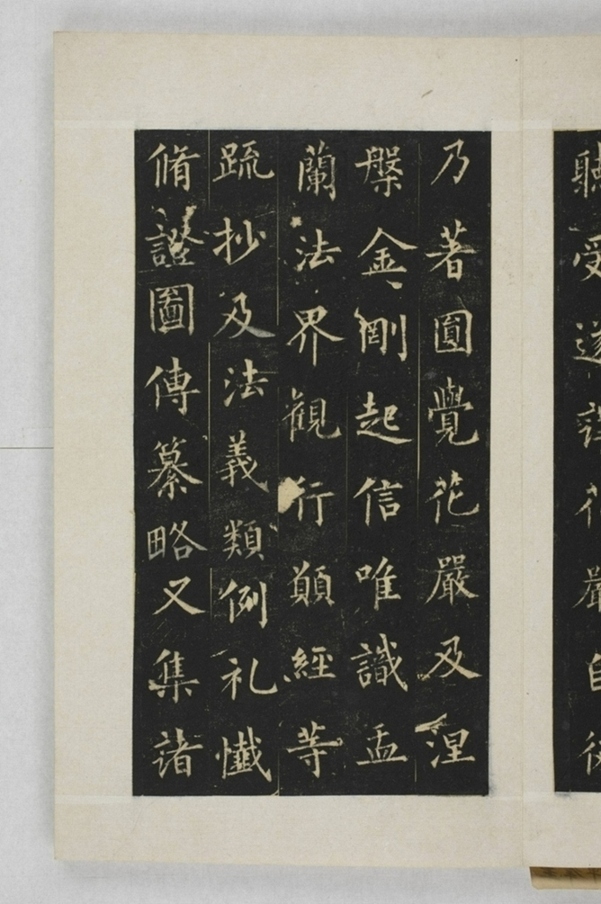 聽受遂講花嚴自後
乃著圓覺花嚴及涅
槃金剛起信唯識盂
蘭法界觀行願經等
疏抄及法義類例礼懺
脩證圖傳纂略又集諸